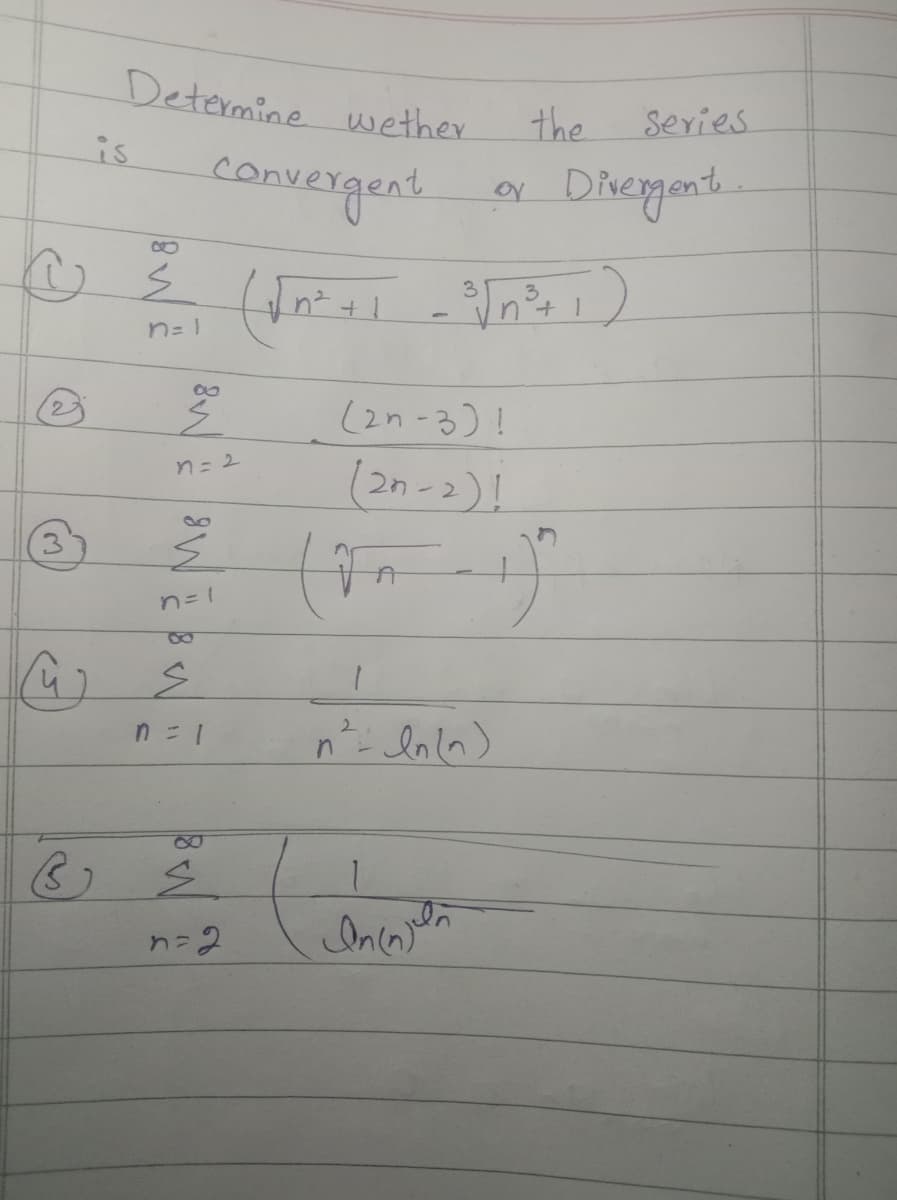 Determine wether the series
is convergent or Divergent.
① ∞ Σ n=1 (√n² + 1 - ³√n³ + 1)
② ∞ Σ n=2 (2n-3)! / (2n-2)!
③ ∞ Σ n=1 (ⁿ√n - 1)ⁿ
④ ∞ Σ n=1 1 / n² - ln(n)
⑤ ∞ Σ n=2 ( 1 / ln(n)^ln